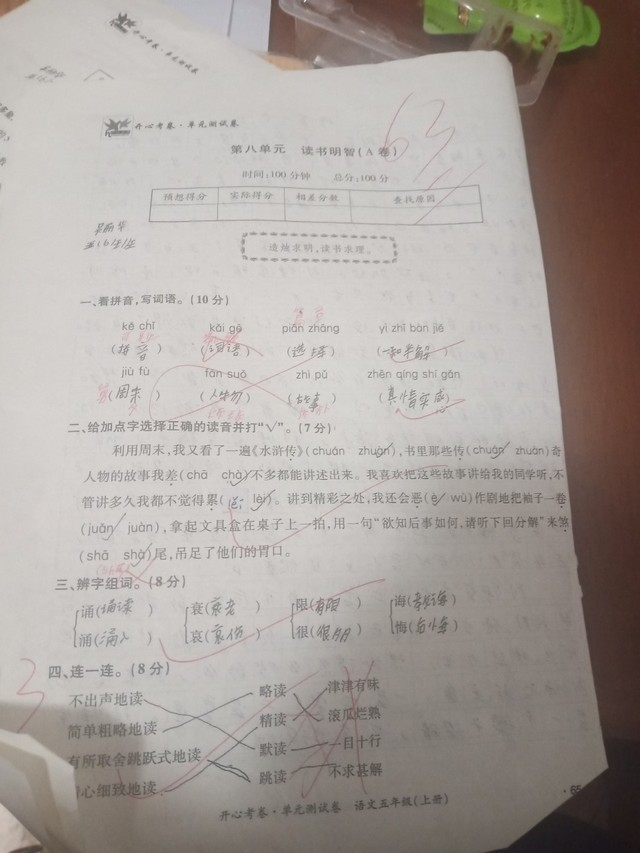 开心考卷·单元测试卷
开心考卷·单元测试卷
第八单元 读书明智(A卷)
63
时间:100分钟 总分:100分
猜想得分 实际得分 相差分数 查找原因
透烛求明,读书求理。
一、看拼音,写词语。(10分)
kě chǐ kāi gē piān zhāng yì zhī bàn jiě
(拼音) (词语) (选择) (一知半解)
jiù fù tān suǒ zhì pǔ zhēn qíng shí gǎn
(周末) (人物) (故事) (真情实感)
二、给加点字选择正确的读音并打“√”。(7分)
利用周末,我又看了一遍《水浒传》(chuán zhuàn),书里那些传(chuán zhuàn)奇
人物的故事我差(chā chà)不多都能讲述出来。我喜欢把这些故事讲给我的同学听,不
管讲多久我都不觉得累(lěi lèi)。讲到精彩之处,我还会恶(è wù)作剧地把袖子一卷
(juǎn juàn),拿起文具盒在桌子上一拍,用一句“欲知后事如何,请听下回分解”来煞
(shā shà)尾,吊足了他们的胃口。
三、辨字组词。(8分)
诵(诵读) 衰(衰老) 限(有限) 诲(教诲)
涌(涌入) 哀(哀伤) 很(很朋) 悔(后悔)
四、连一连。(8分)
3
不出声地读 略读 津津有味
简单粗略地读 精读 滚瓜烂熟
有所取舍跳跃式地读 默读 一目十行
心细致地读 跳读 不求甚解
开心考卷·单元测试卷 语文五年级(上册)
·65